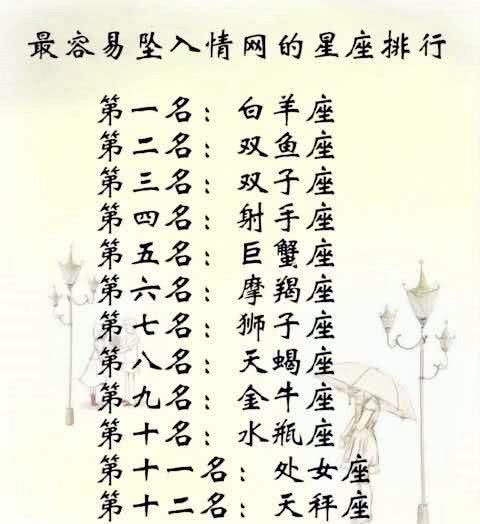 最容易坠入情网的星座排行
第一名：白羊座
第二名：双鱼座
第三名：双子座
第四名：射手座
第五名：巨蟹座
第六名：摩羯座
第七名：狮子座
第八名：天蝎座
第九名：金牛座
第十名：水瓶座
第十一名：处女座
第十二名：天秤座